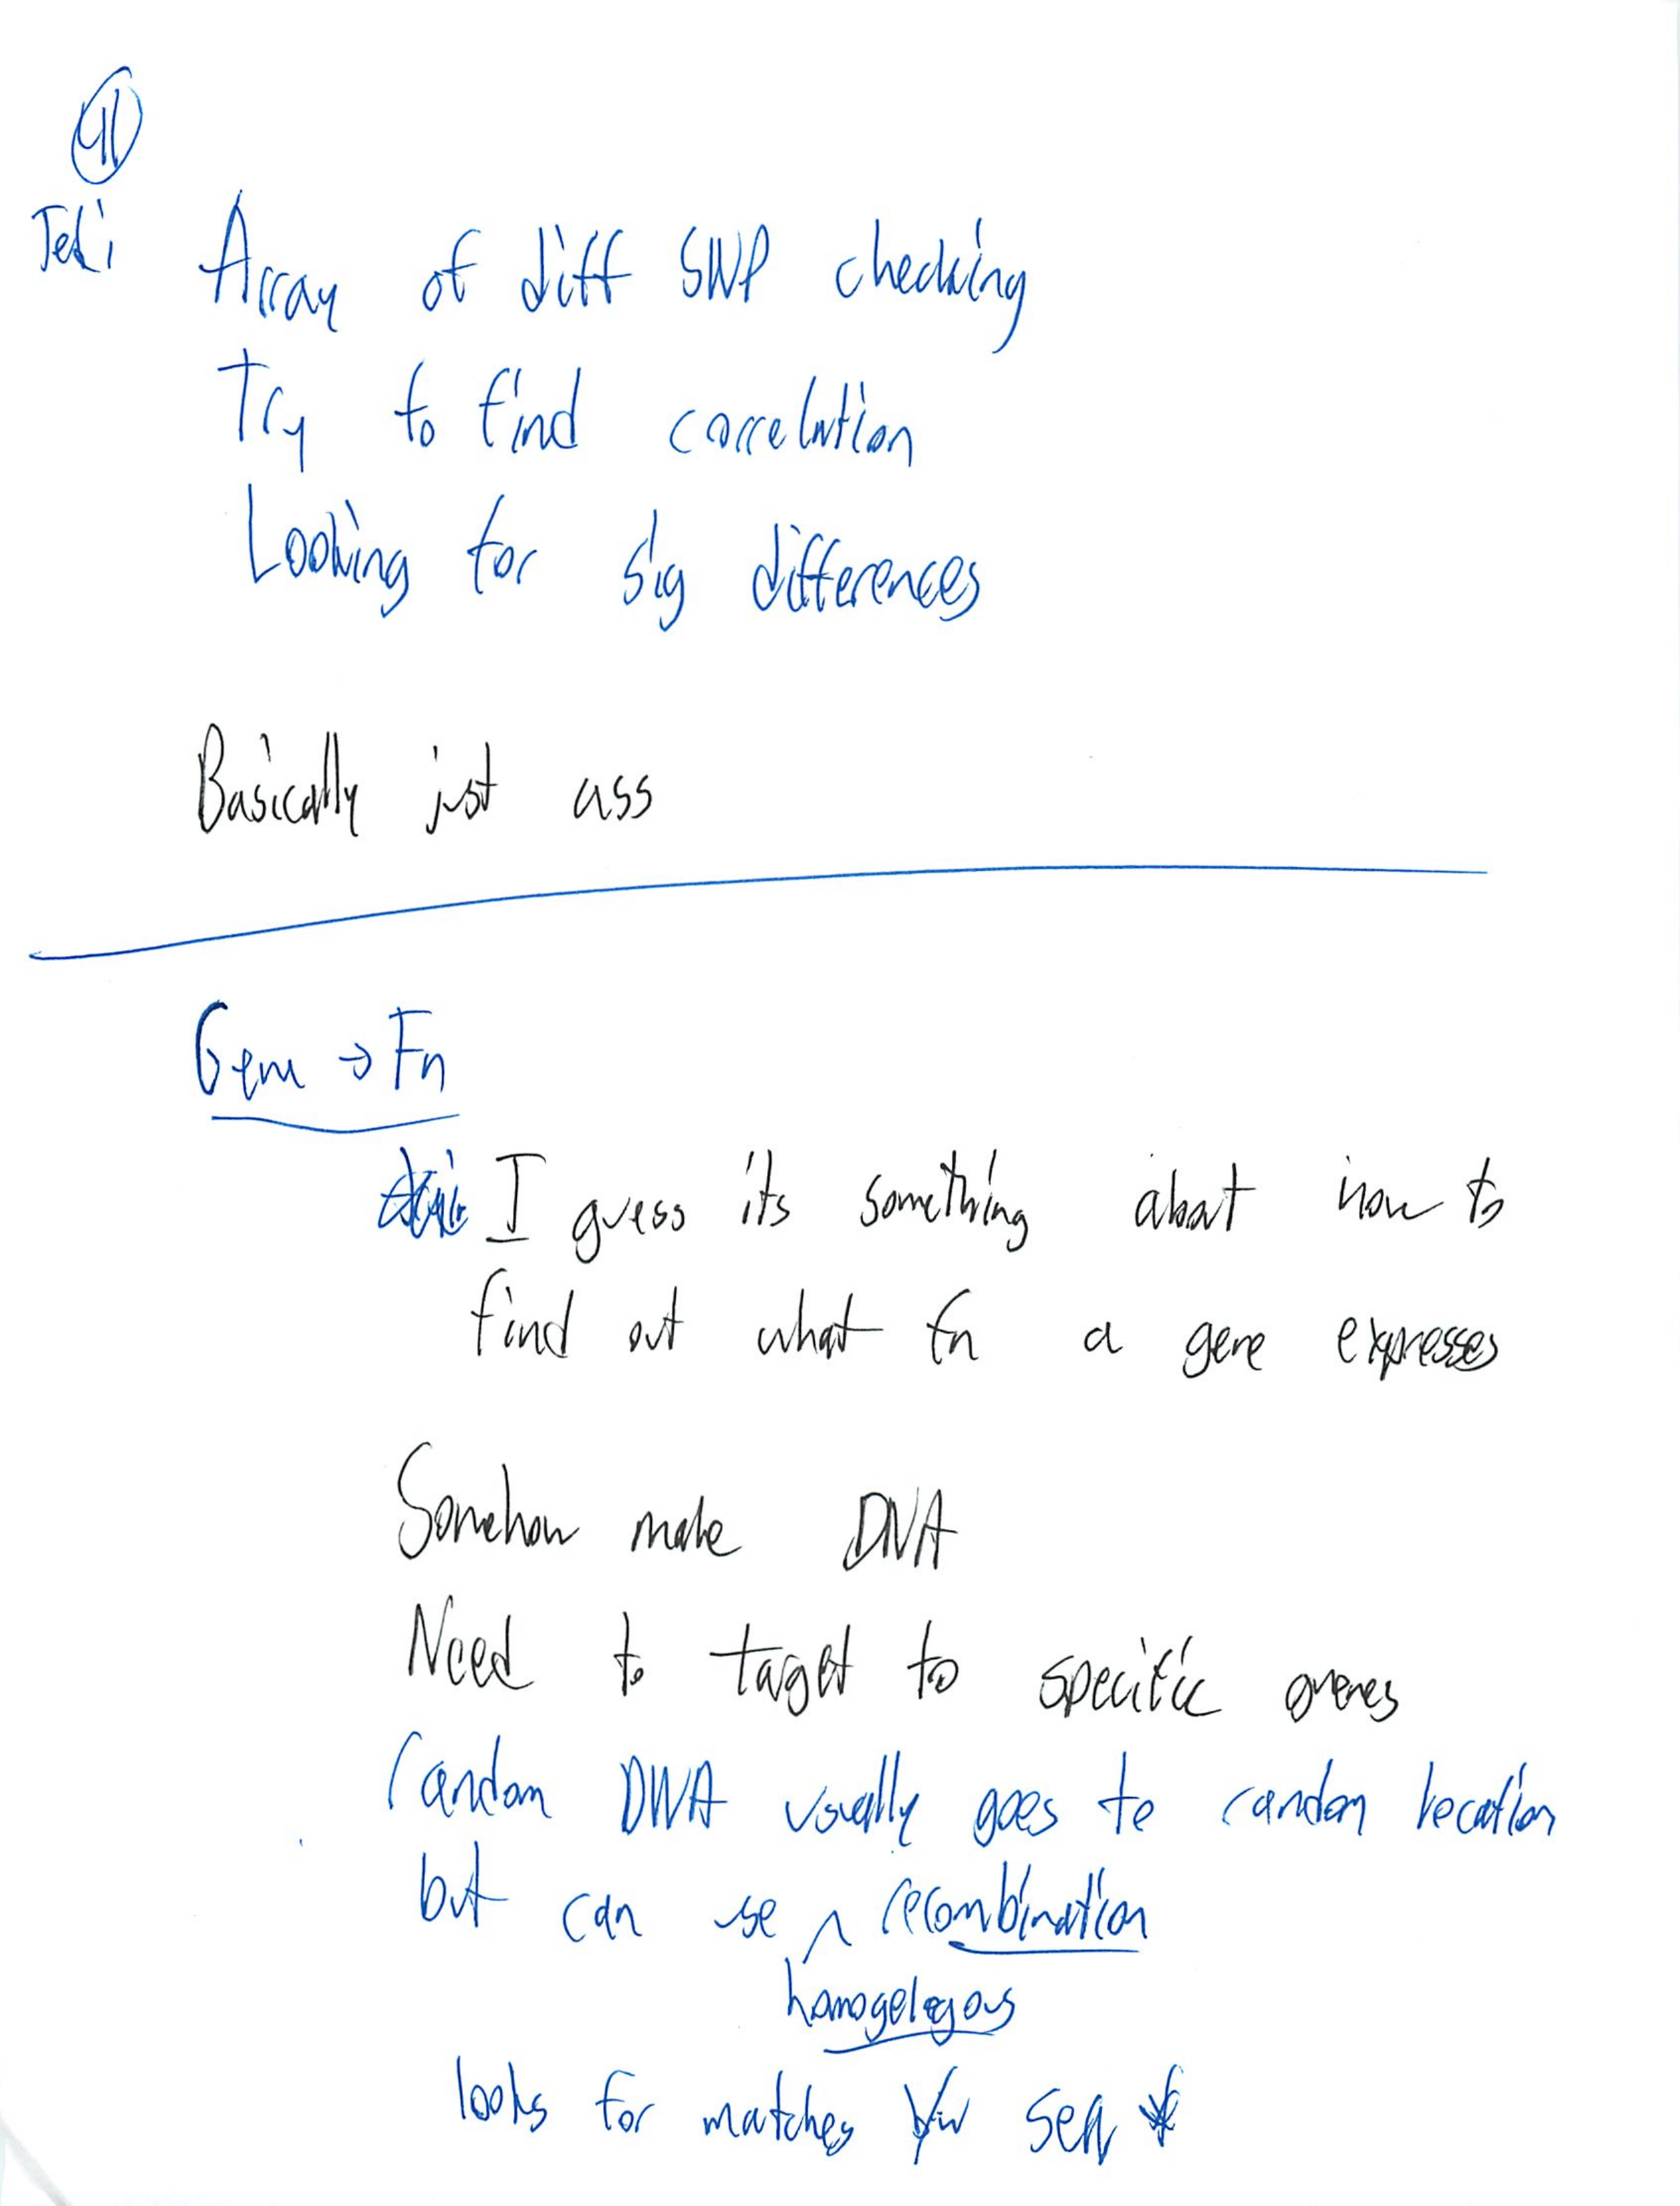 41
Jedi
Array of diff SNP checking
Try to find correlation
Looking for sig differences
Basically just ass
Gene → Fn
I guess its something about how to
find out what fn a gene expresses
Somehow make DNA
Need to target to specific genes
random DNA usually goes to random location
but can use ^ recombination
homogelogous
looks for matches seq